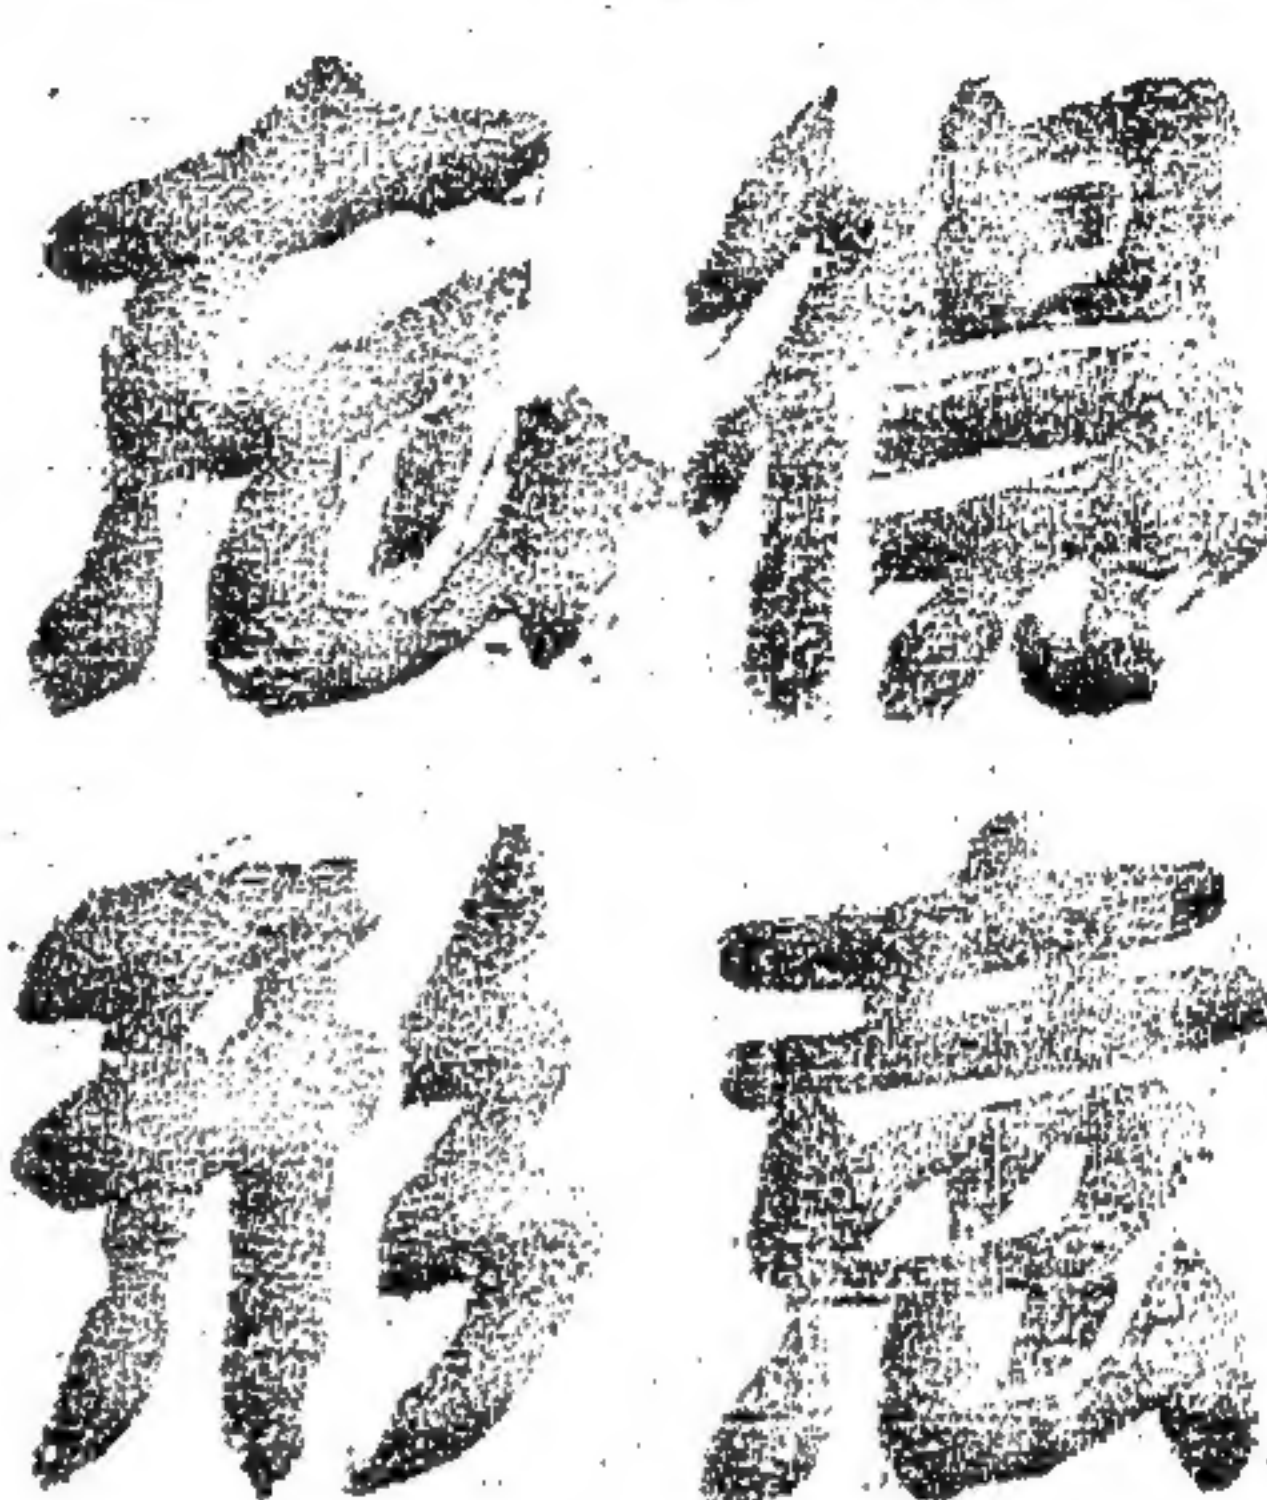 得意
忘形